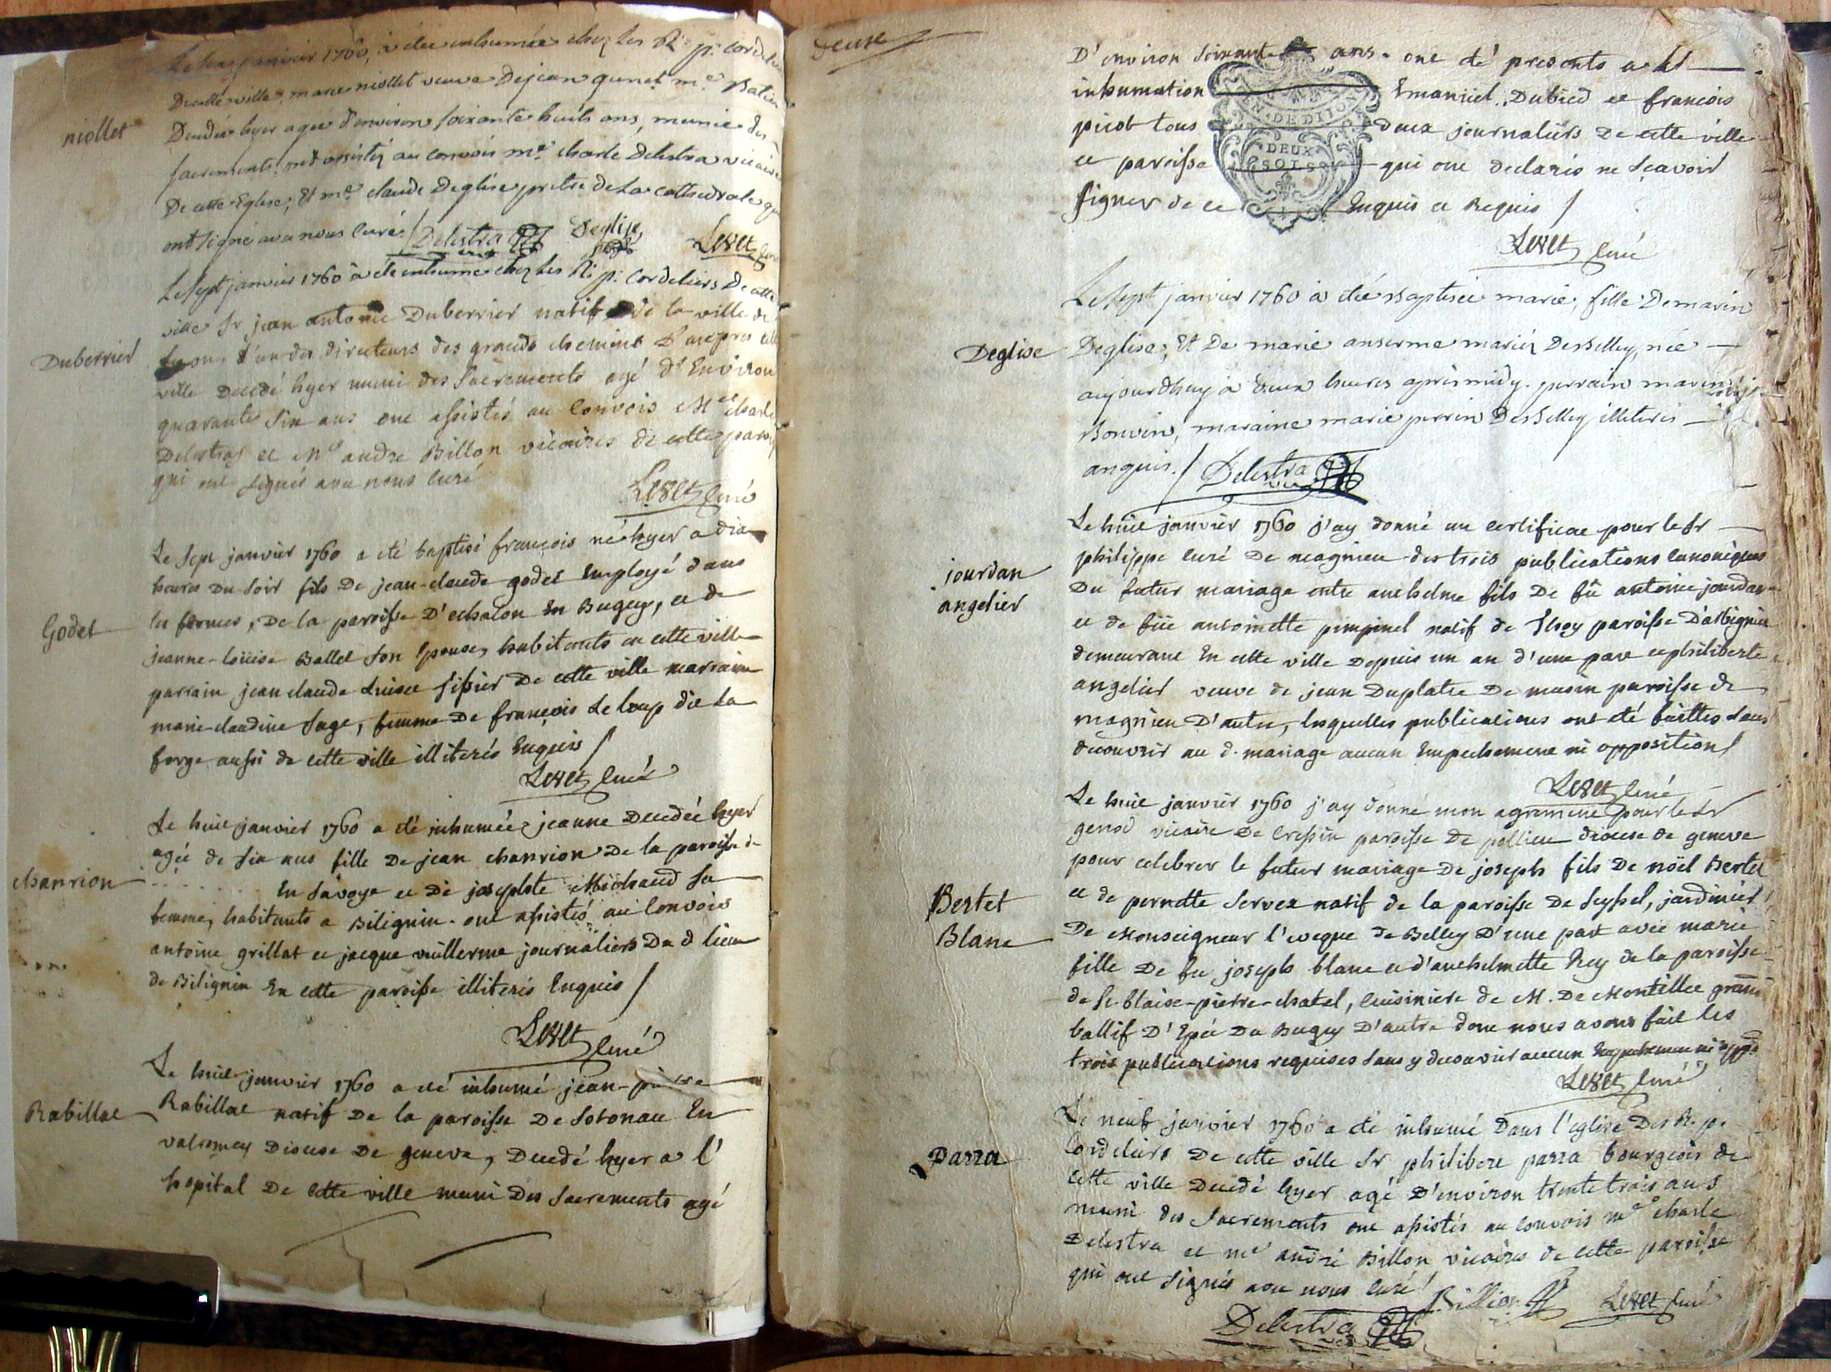 janvier 1760, a été inhumée chez les R. p. Cordeliers
De cette ville, marie niollet veuve De jean
niollet
Decedée hyer agée d'environ soixante huit ans, munie des
sacrements, ont assistez au convois me. charle Delestra vicaire
De cette Eglise; Et me. claude Deglise pretre de La cathedrale qui
ont signé avec nous curé / Delestra Deglise Leret
Le sept janvier 1760 à été inhumé chez les R. p. Cordeliers De cette
ville Sr jean antoine Duberrier natif de la ville de
Duberrier
Lyon, l'un des directeurs des grands chemins
ville decedé hyer muni des Sacrements agé d'Environ
quarante six ans ont assistés au Convois Me charle
Delestraz et Me andre Billon vicaires de cette paroisse
qui ont signés avec nous curé
Leret curé
Le sept janvier 1760 a été baptisé françois né hyer a dix
heures du soir fils de jean-claude godet Employé dans
les fermes, De la paroisse D'echalon En Bugey, et de
Godet
jeanne-loüise Ballet son Epouse, habitants en cette ville
parrain jean claude fisier De cette ville marraine
marie-claudine Sage, femme De françois Le loup dit La
forge aussi de cette ville illiterés Enquis /
Leret curé
Le huit janvier 1760 a été inhumée jeanne Decedée hyer
agée de six ans fille De jean chanrion De la paroisse de
chanrion
. . . . . . . En Savoye et De josephte Michaud sa
femme, habitants a Bilignin. ont assistés au Convois
antoine grillat et jacque vuillerme journaliers Du d. lieu
de Bilignin En cette paroisse illiterés Enquis /
Leret curé
Le huit janvier 1760 a été inhumé jean-pierre
Rabillat
Rabillat natif De la paroisse De Sotonau En
valromey Diocese De geneve, Decedé hyer a l'
hopital De cette ville muni Des Sacrements agé
D'environ Soixante ans. ont été presents a la
inhumation Emanüel Dubied et françois
picot tous deux journaliers De cette ville
et paroisse qui ont declarés ne Sçavoir
signer de ce Enquis et Requis /
EN DEDITION
DEUX
SOLS
Leret curé
Le sept janvier 1760 à été Baptisée marie, fille De marin
Deglise
Deglise, Et De marie anserme mariéz Desselley, née
aujourdhuy à deux heures après midy. parrain marin
Bouvin, maraine marie perrin Desselley illiterés
enquis. / Delestra vic
Le huit janvier 1760 j'ay donné un certificat pour le Sr
philippe curé De magnieu des trois publications canoniques
jourdan
angelier
Du futur mariage entre anthelme fils De fû antoine jourdan
et de füe antoinette pimpinel natif de paroisse D'arbignieu
demeurant En cette ville Depuis un an d'une part et philiberte
angelier veuve de jean Duplatre De musin paroisse de
magnieu D'autre, lesquelles publications ont été faittes sans
decouvrir au d. mariage aucun Empechement ni opposition /
Leret curé
Le huit janvier 1760 j'ay donné mon agrement pour le Sr
genod vicaire De Cressin paroisse De pollieu diocese de geneve
pour celebrer le futur mariage de joseph fils De nöel Bertet
Bertet
Blanc
et de pernette Servez natif de la paroisse De Seyssel, jardinier
De Monseigneur l'eveque de Belley D'une part avec marie
fille De feu joseph blanc et d'anthelmette Rey de la paroisse
de St. blaise-pierre-chatel, cuisiniere de M. De Montillet grand
ballif D'Epée Du Bugey D'autre dont nous avons fait les
trois publications requises sans y decouvrir aucun Empechement ni
Leret curé
Le neuf janvier 1760 a été inhumé Dans l'eglise Des R. p.
Parra
Cordeliers De cette ville Sr philibert parra bourgeois de
cette ville Decedé hyer agé D'environ trente trois ans
muni des Sacrements ont assistés au convois me charle
Delestra et me andré Billon vicaires de cette paroisse
qui ont signés avec nous curé /
Billion Leret curé
Delestra